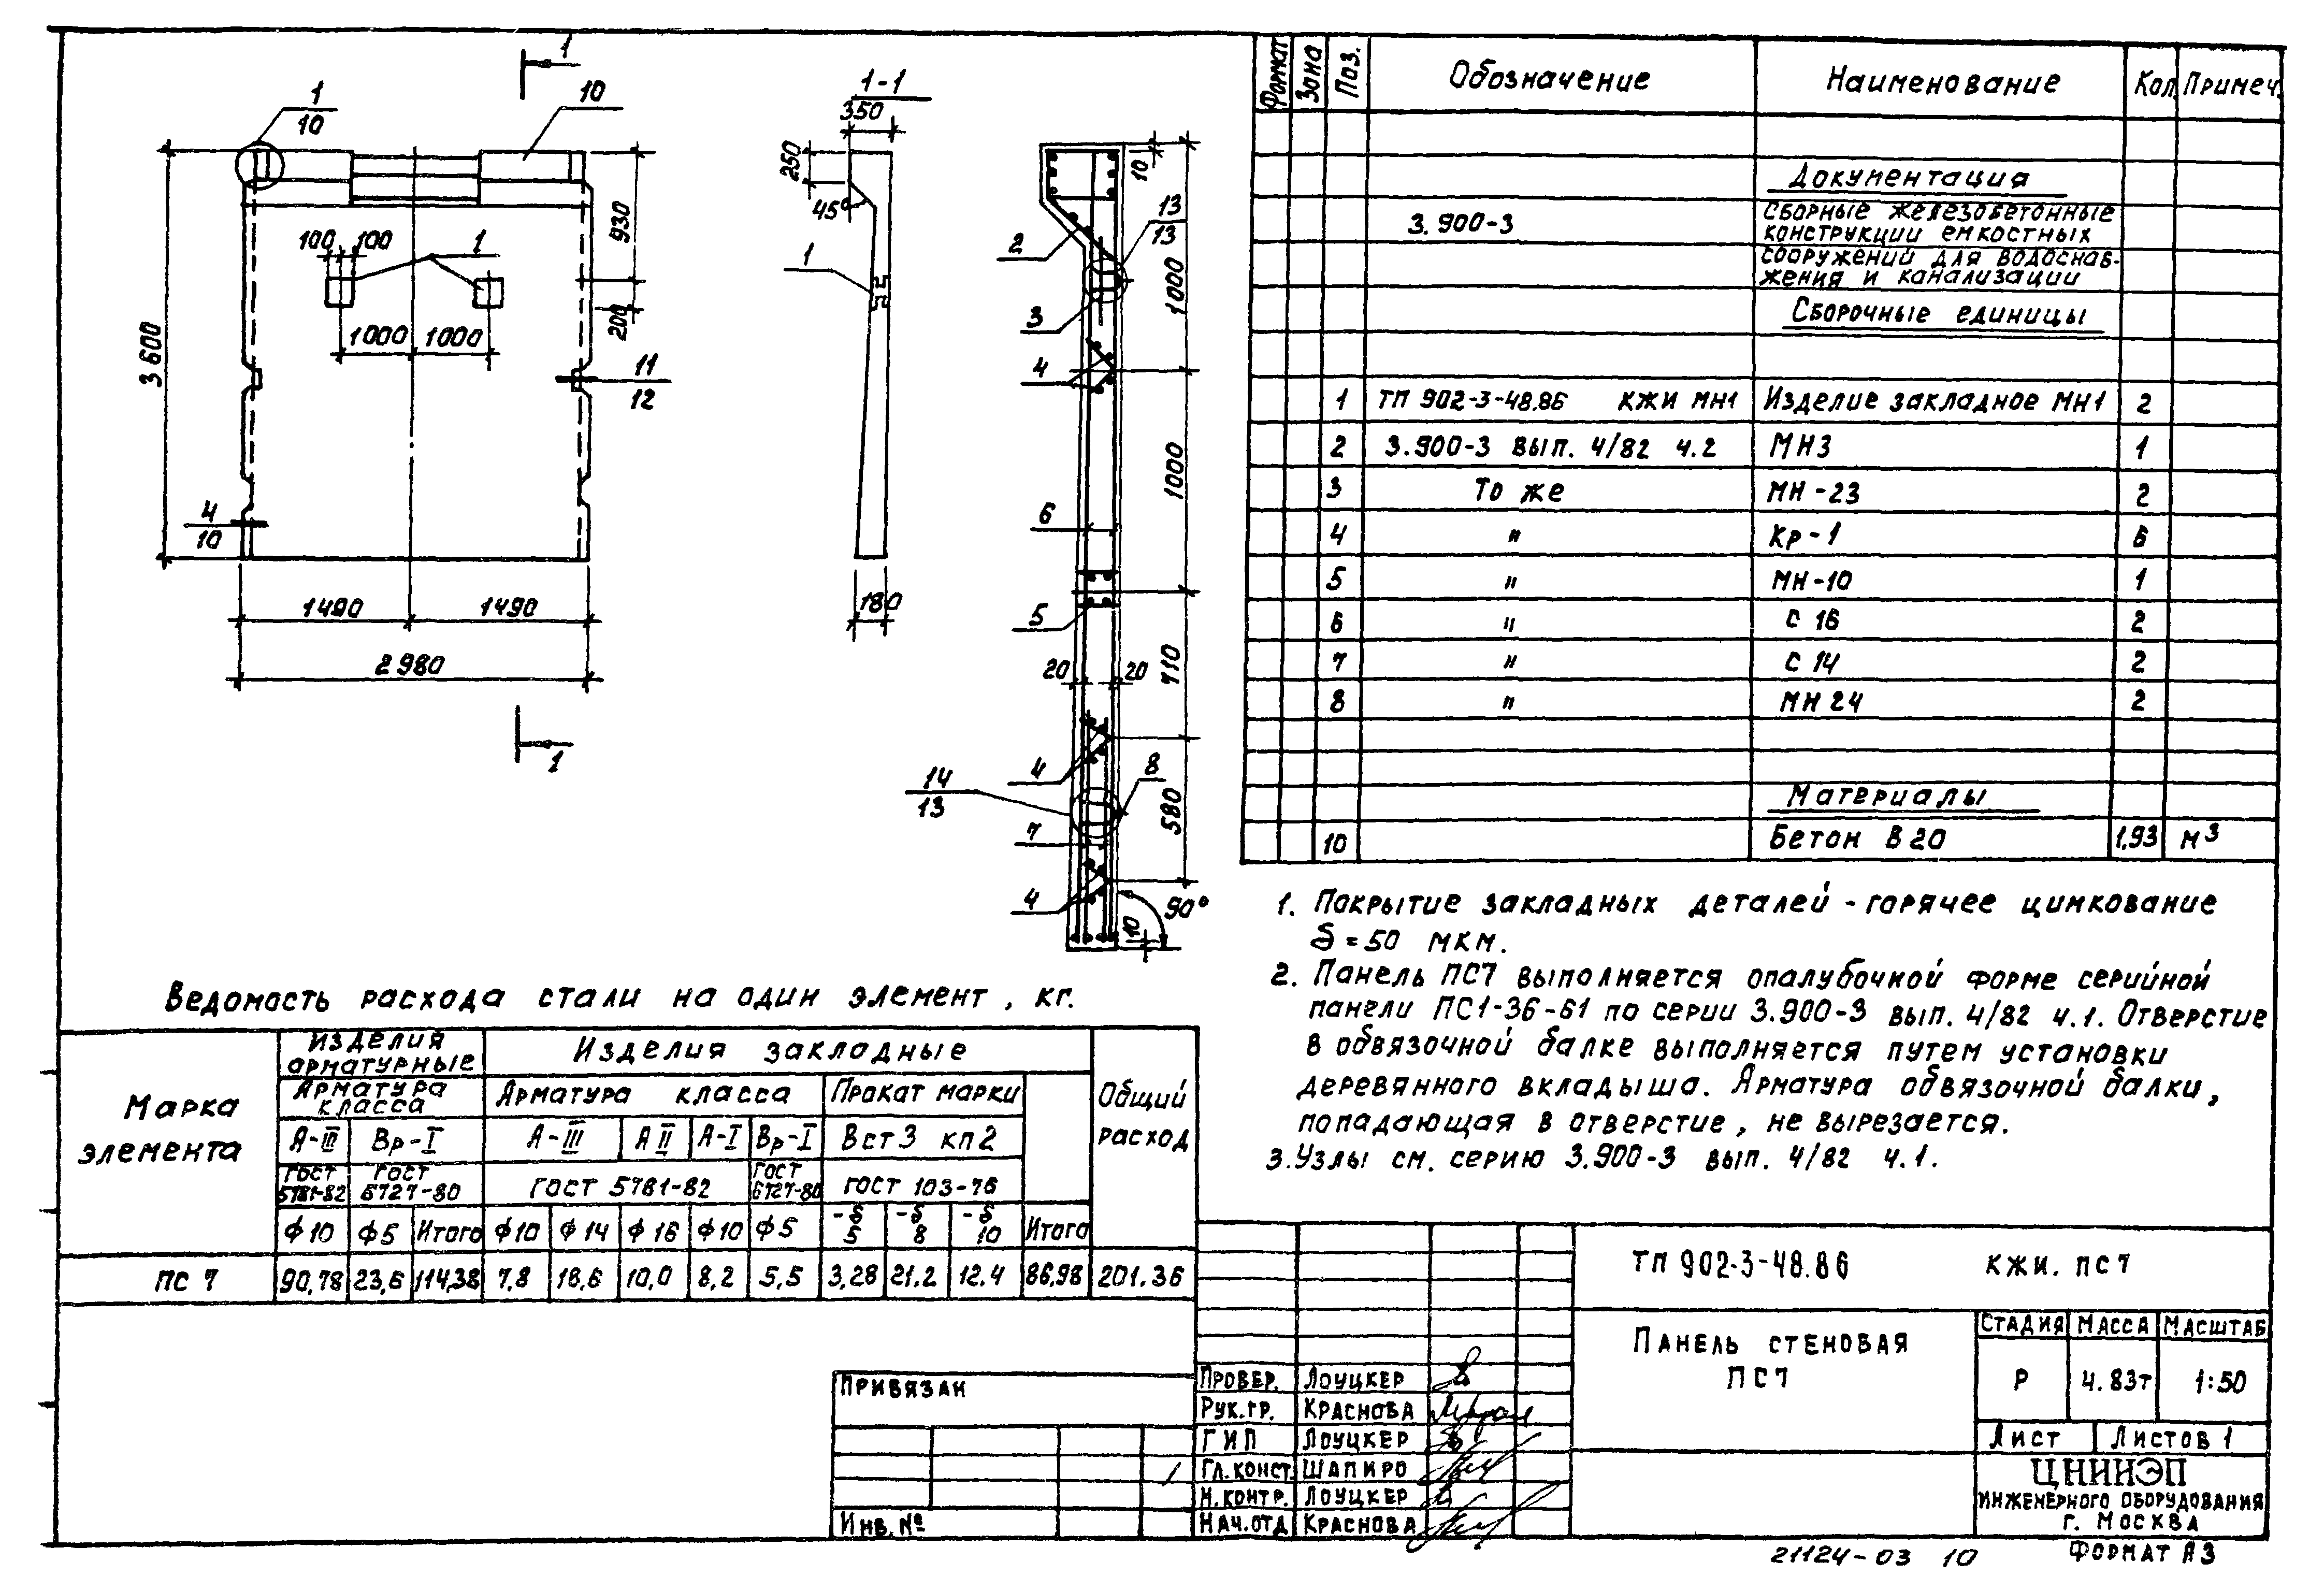 1
1
10
10
3600
930
200
100
100
1
1000
1000
11
12
4
10
1490
1490
2980
1
1-1
350
250
45°
1
180
10
13
13
2
3
4
1000
1000
6
5
20
20
710
4
8
14
13
580
7
4
90°
10
Формат
Зона
Поз.
Обозначение
Наименование
Кол.
Примеч.
Документация
3.900-3
Сборные железобетонные
конструкции емкостных
сооружений для водоснаб-
жения и канализации
Сборочные единицы
1 ТП 902-3-48.86 КЖИ МН1 Изделие закладное МН1 2
2 3.900-3 вып. 4/82 ч.2 МН3 1
3 То же МН-23 2
4 " Кр-1 6
5 " МН-10 1
6 " С 16 2
7 " С 14 2
8 " МН 24 2
Материалы
10 Бетон В20 1,93 м3
1. Покрытие закладных деталей - горячее цинкование
δ = 50 мкм.
2. Панель ПС7 выполняется опалубочной форме серийной
панели ПС1-36-Б1 по серии 3.900-3 вып. 4/82 ч.1. Отверстие
в обвязочной балке выполняется путем установки
деревянного вкладыша. Арматура обвязочной балки,
попадающая в отверстие, не вырезается.
3. Узлы см. серию 3.900-3 вып. 4/82 ч.1.
Ведомость расхода стали на один элемент, кг.
Марка
элемента
Изделия
арматурные
Изделия закладные
Общий
расход
Арматура
класса
Арматура класса
Прокат марки
А-III Вр-I А-III АII А-I Вр-I Вст3 кп2
ГОСТ
5781-82
ГОСТ
6727-80
ГОСТ 5781-82
ГОСТ
6727-80
ГОСТ 103-76
ф10 ф5 Итого ф10 ф14 ф16 ф10 ф5 -δ 5 -δ 8 -δ 10 Итого
ПС 7 90,78 23,6 114,38 7,8 18,6 10,0 8,2 5,5 3,28 21.2 12.4 86,98 201.36
ТП 902-3-48.86 КЖИ. ПС7
Панель стеновая
ПС7
Стадия Масса Масштаб
Р 4.83т 1:50
Лист Листов 1
ЦНИИЭП
инженерного оборудования
г. Москва
Привязан
Инв. №
Провер. Лоуцкер
Рук.гр. Краснова
ГИП Лоуцкер
Гл.конст. Шапиро
Н.контр. Лоуцкер
Нач.отд Краснова
21124-03 10
Формат А3